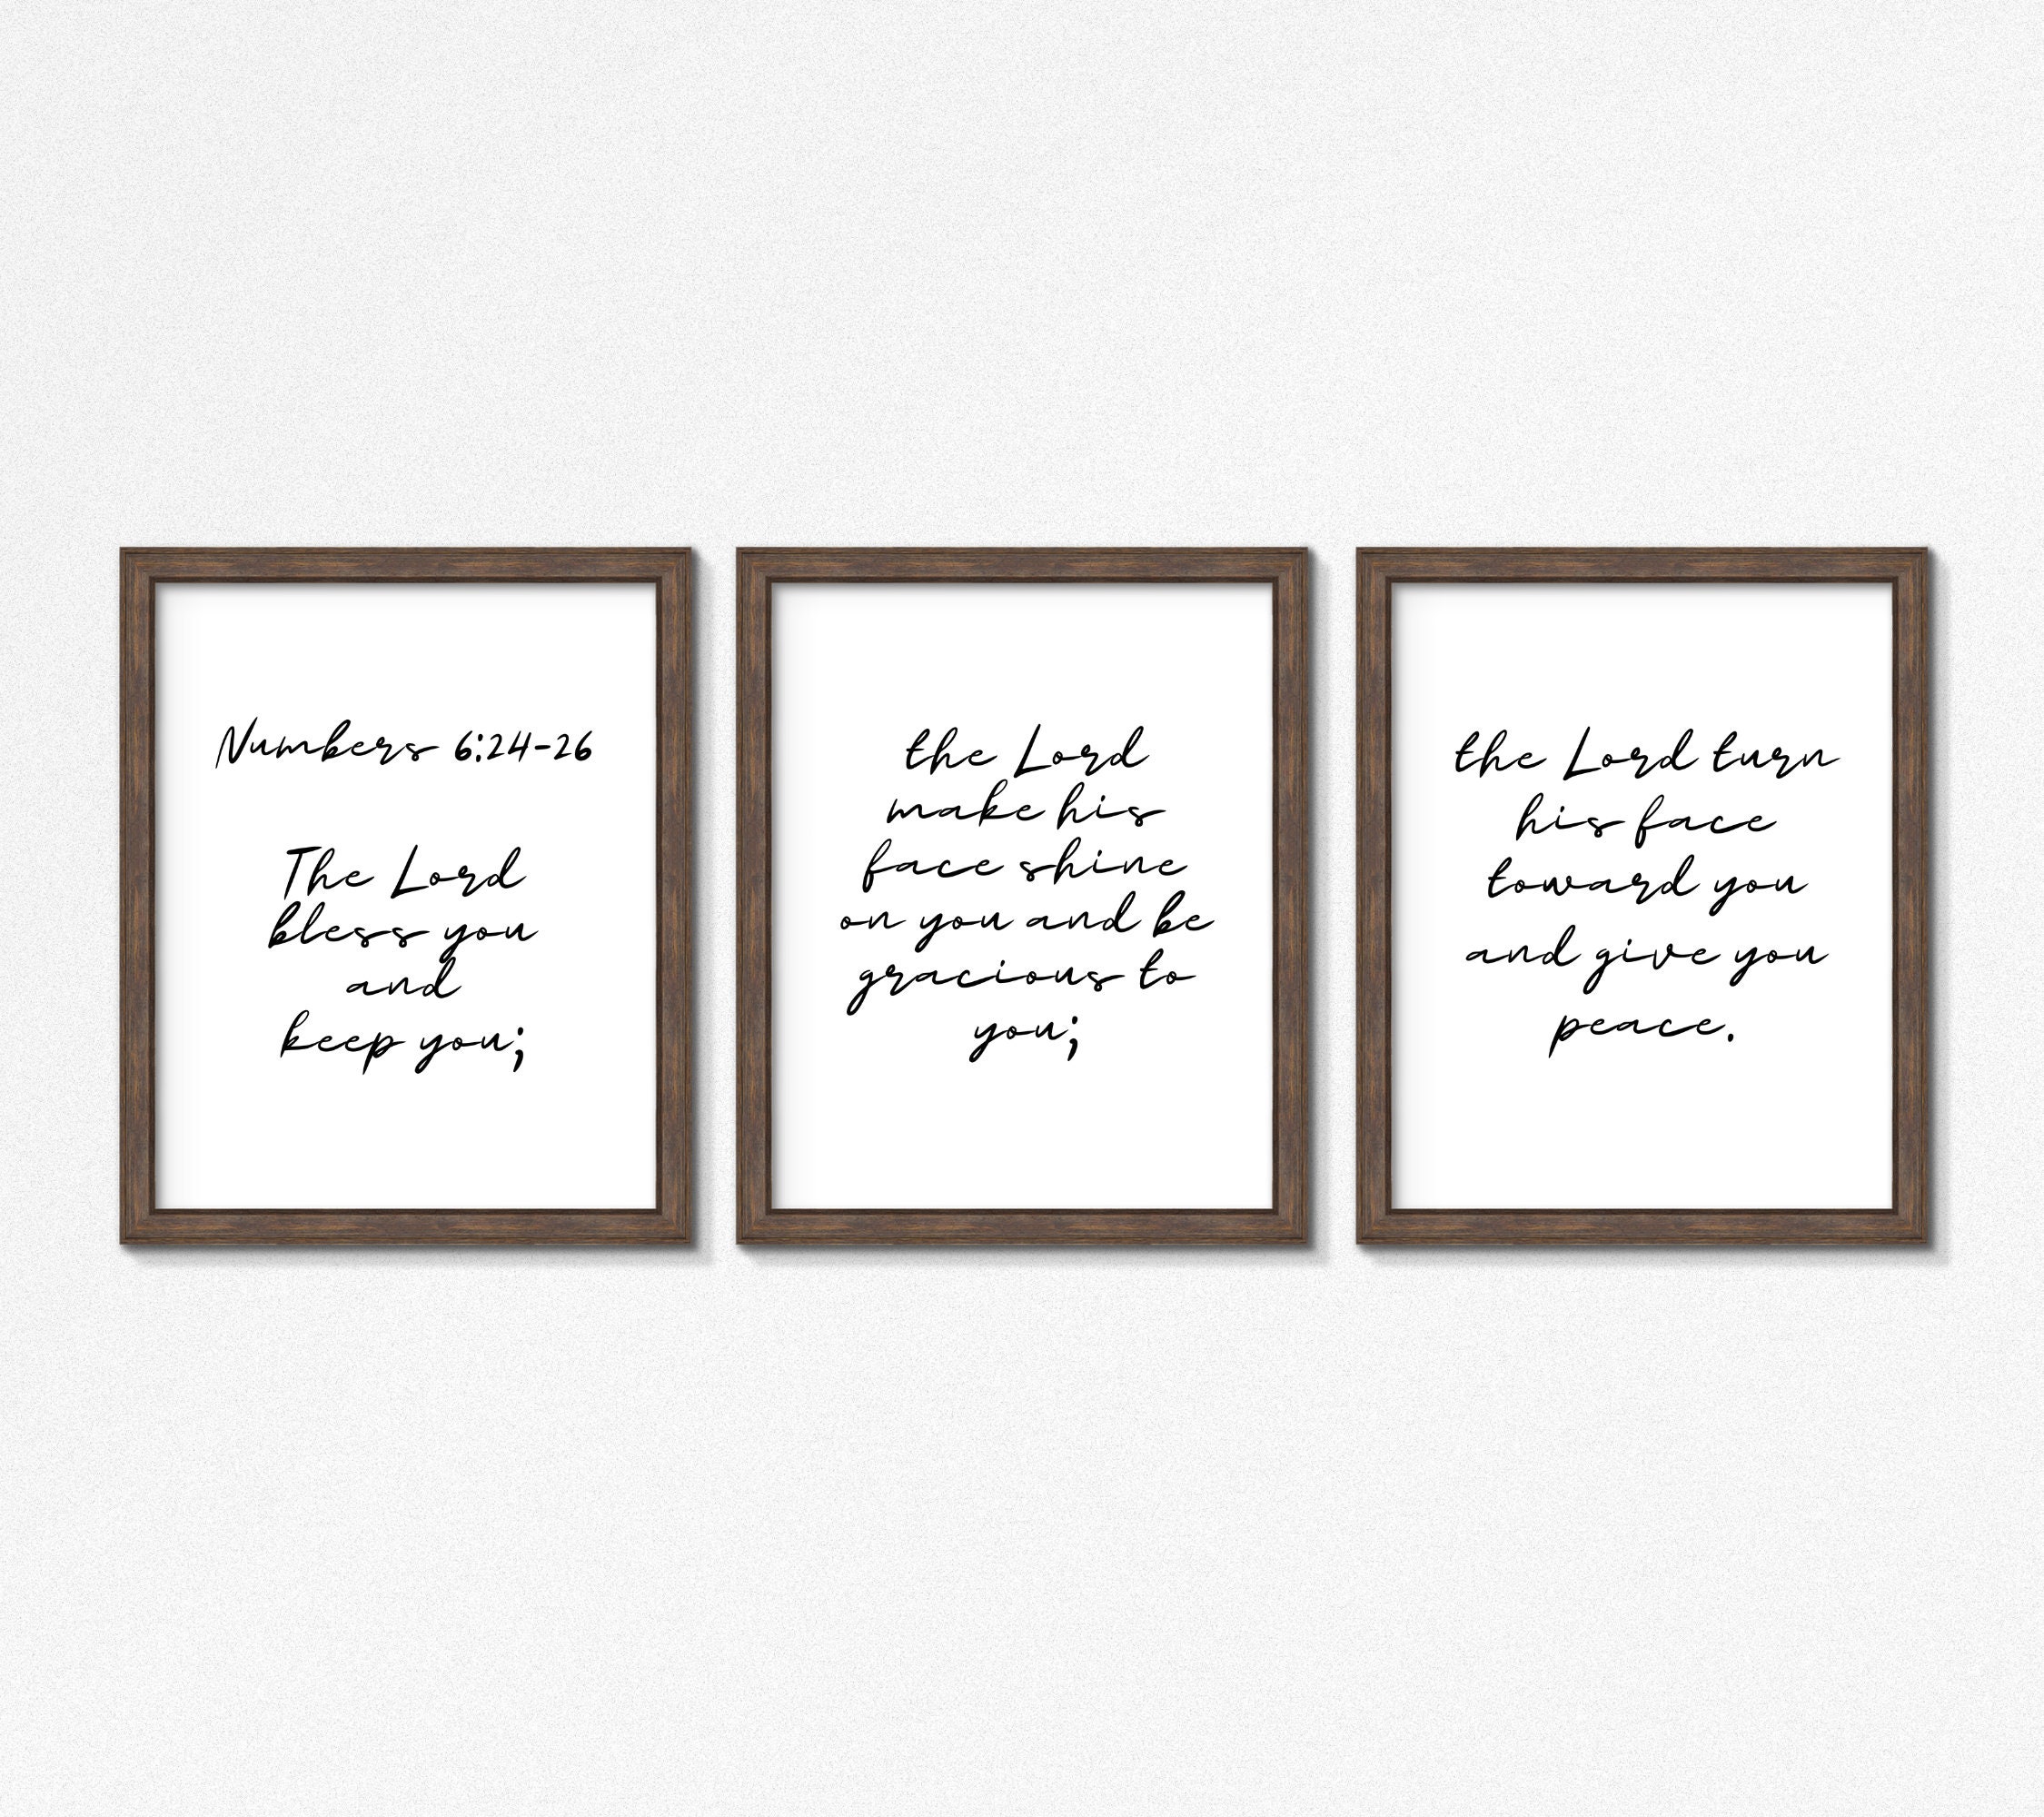 Numbers 6:24-26
The Lord
bless you
and
keep you;
the Lord
make his
face shine
on you and be
gracious to
you;
the Lord turn
his face
toward you
and give you
peace.